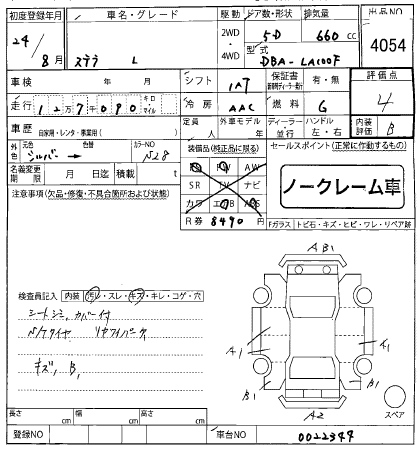 初度登録年月 車名・グレード 駆動 ドア数・形状 排気量 出品NO
24/8月 ステラ L 2WD・4WD 5D 660cc 4054
型式 DBA-LA100F
車検 年 月 シフト IAT 保証書 有・無 評価点 4
走行 127090 キロ・マイル 冷房 AAC 燃料 G
車歴 自家用・レンタ・事業用( ) 定員 人 外車モデル 年 ディーラー・並行 ハンドル 左・右 内装評価 B
外色 元色 シルバー→ 色替 カラーNO N28 装備品(純正品に限る) セールスポイント(正常に作動するもの)
名義変更期限 月 日迄 積載 t PS PW AW
SR TV ナビ
カワ エアB ABS
R券 8490円
ノークレーム車
注意事項(欠品・修復・不具合箇所および状態)
Fガラス トビ石・キズ・ヒビ・ワレ・リペア跡
AB1
検査員記入 内装 汚レ・スレ・キズ・キレ・コゲ・穴
シートシミ,カバー付
キズ,B,
A1 A1
B1 B1
A2
スペア
長さ cm 幅 cm 高さ cm
登録NO 車台NO 0022347